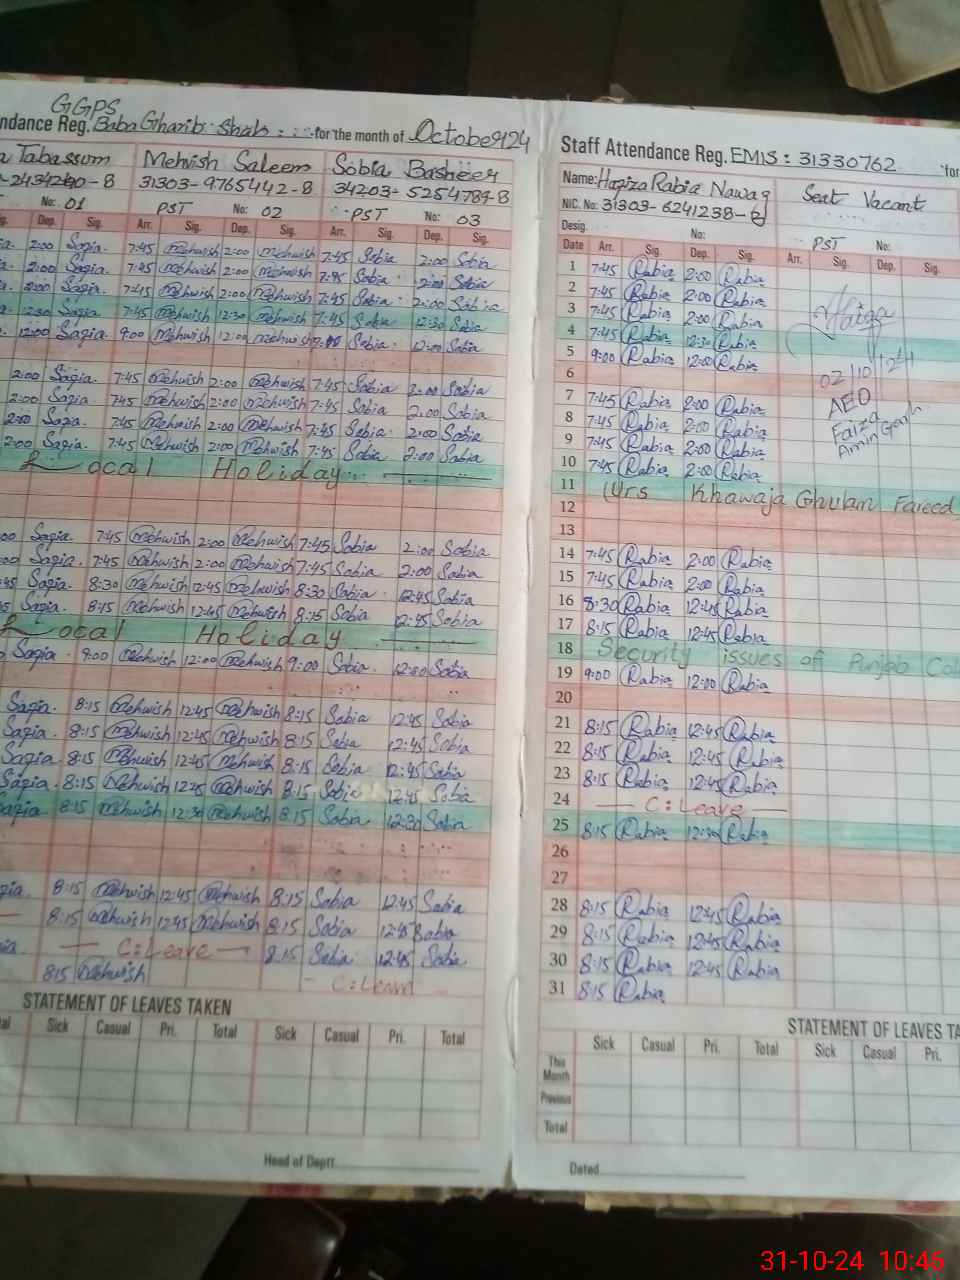 GGPS
ndance Reg. Baba Gharib Shah :... for the month of October 24
a Tabassum Mehvish Saleem Sobia Basheer
31303-9765442-8 34203-5254789-8
No: 01 PST No: 02 PST No: 03
Dep. Sig. Arr. Sig. Dep. Sig. Arr. Sig. Dep. Sig.
2:00 Sazia. 7:45 Mehwish 2:00 Mehwish 7:45 Sobia 2:00 Sobia
2:00 Sazia. 7:45 Mehwish 2:00 Mehwish 7:45 Sobia 2:00 Sobia
2:00 Sazia. 7:45 Mehwish 2:00 Mehwish 7:45 Sobia 2:00 Sobia
12:30 Sazia 7:45 Mehwish 12:30 Mehwish 7:45 Sobia 12:30 Sobia
12:00 Sazia. 9:00 Mehwish 12:00 Mehwish 9:00 Sobia 12:00 Sobia
2:00 Sazia. 7:45 Mehwish 2:00 Mehwish 7:45 Sobia 2:00 Sobia
2:00 Sazia. 7:45 Mehwish 2:00 Mehwish 7:45 Sobia 2:00 Sobia
2:00 Sazia. 7:45 Mehwish 2:00 Mehwish 7:45 Sobia 2:00 Sobia
2:00 Sazia. 7:45 Mehwish 2:00 Mehwish 7:45 Sobia 2:00 Sobia
Local Holiday
00 Sazia. 7:45 Mehwish 2:00 Mehwish 7:45 Sobia 2:00 Sobia
00 Sazia. 7:45 Mehwish 2:00 Mehwish 7:45 Sobia 2:00 Sobia
45 Sazia. 8:30 Mehwish 12:45 Mehwish 8:30 Sobia 12:45 Sobia
45 Sazia. 8:15 Mehwish 12:45 Mehwish 8:15 Sobia 12:45 Sobia
Local Holiday
Sazia. 9:00 Mehwish 12:00 Mehwish 9:00 Sobia 12:00 Sobia
Sazia. 8:15 Mehwish 12:45 Mehwish 8:15 Sobia 12:45 Sobia
Sazia. 8:15 Mehwish 12:45 Mehwish 8:15 Sobia 12:45 Sobia
Sazia. 8:15 Mehwish 12:45 Mehwish 8:15 Sobia 12:45 Sobia
Sazia. 8:15 Mehwish 12:45 Mehwish 8:15 Sobia 12:45 Sobia
Sazia. 8:15 Mehwish 12:30 Mehwish 8:15 Sobia 12:30 Sobia
zia. 8:15 Mehwish 12:45 Mehwish 8:15 Sobia 12:45 Sobia
8:15 Mehwish 12:45 Mehwish 8:15 Sobia 12:45 Sobia
ia. — C:Leave — 8:15 Sobia 12:45 Sobia
8:15 Mehwish - C:Leave
STATEMENT OF LEAVES TAKEN
al Sick Casual Pri. Total Sick Casual Pri. Total
Head of Deptt.
Staff Attendance Reg. EMIS: 31330762 for
Name: Hafiza Rabia Nawaz Seat Vacant
NIC. No: 31303-6241238-
Desig. No: PST No:
Date Arr. Sig. Dep. Sig. Arr. Sig. Dep. Sig.
1 7:45 Rabia 2:00 Rabia
2 7:45 Rabia 2:00 Rabia
3 7:45 Rabia 2:00 Rabia
4 7:45 Rabia 12:30 Rabia
5 9:00 Rabia 12:00 Rabia
6
7 7:45 Rabia 2:00 Rabia
8 7:45 Rabia 2:00 Rabia
9 7:45 Rabia 2:00 Rabia
10 7:45 Rabia 2:00 Rabia
02/10/24
AEO
Faiza
Amin Garh
11 (Urs Khawaja Ghulam Fareed
12
13
14 7:45 Rabia 2:00 Rabia
15 7:45 Rabia 2:00 Rabia
16 8:30 Rabia 12:45 Rabia
17 8:15 Rabia 12:45 Rabia
18 Security issues of Punjab Col
19 9:00 Rabia 12:00 Rabia
20
21 8:15 Rabia 12:45 Rabia
22 8:15 Rabia 12:45 Rabia
23 8:15 Rabia 12:45 Rabia
24 — C:Leave —
25 8:15 Rabia 12:30 Rabia
26
27
28 8:15 Rabia 12:45 Rabia
29 8:15 Rabia 12:45 Rabia
30 8:15 Rabia 12:45 Rabia
31 8:15 Rabia
STATEMENT OF LEAVES TA
Sick Casual Pri. Total Sick Casual Pri.
This Month
Previous
Total
Dated
31-10-24 10:45